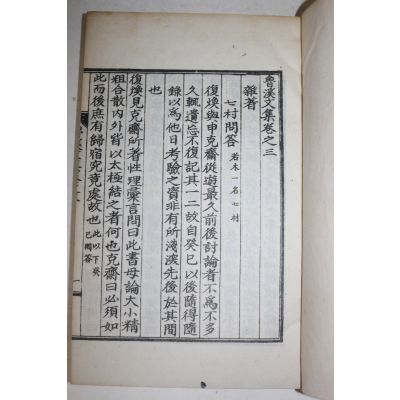 魯溪文集卷之三
雜著
七村問答 若木一名七村
復煥與申克齋從遊最久前後討論者不爲不多
久輒遺忘不復記其一二故自癸巳以後隨得隨
錄以爲他日考驗之資非有所淺深先後於其間
也
復煥見克齋所著性理彙言問曰此書毋論大小精
粗合散內外皆以太極結之者何也克齋曰必須如
此而後庶有歸宿究竟處故也 此以下癸巳問答